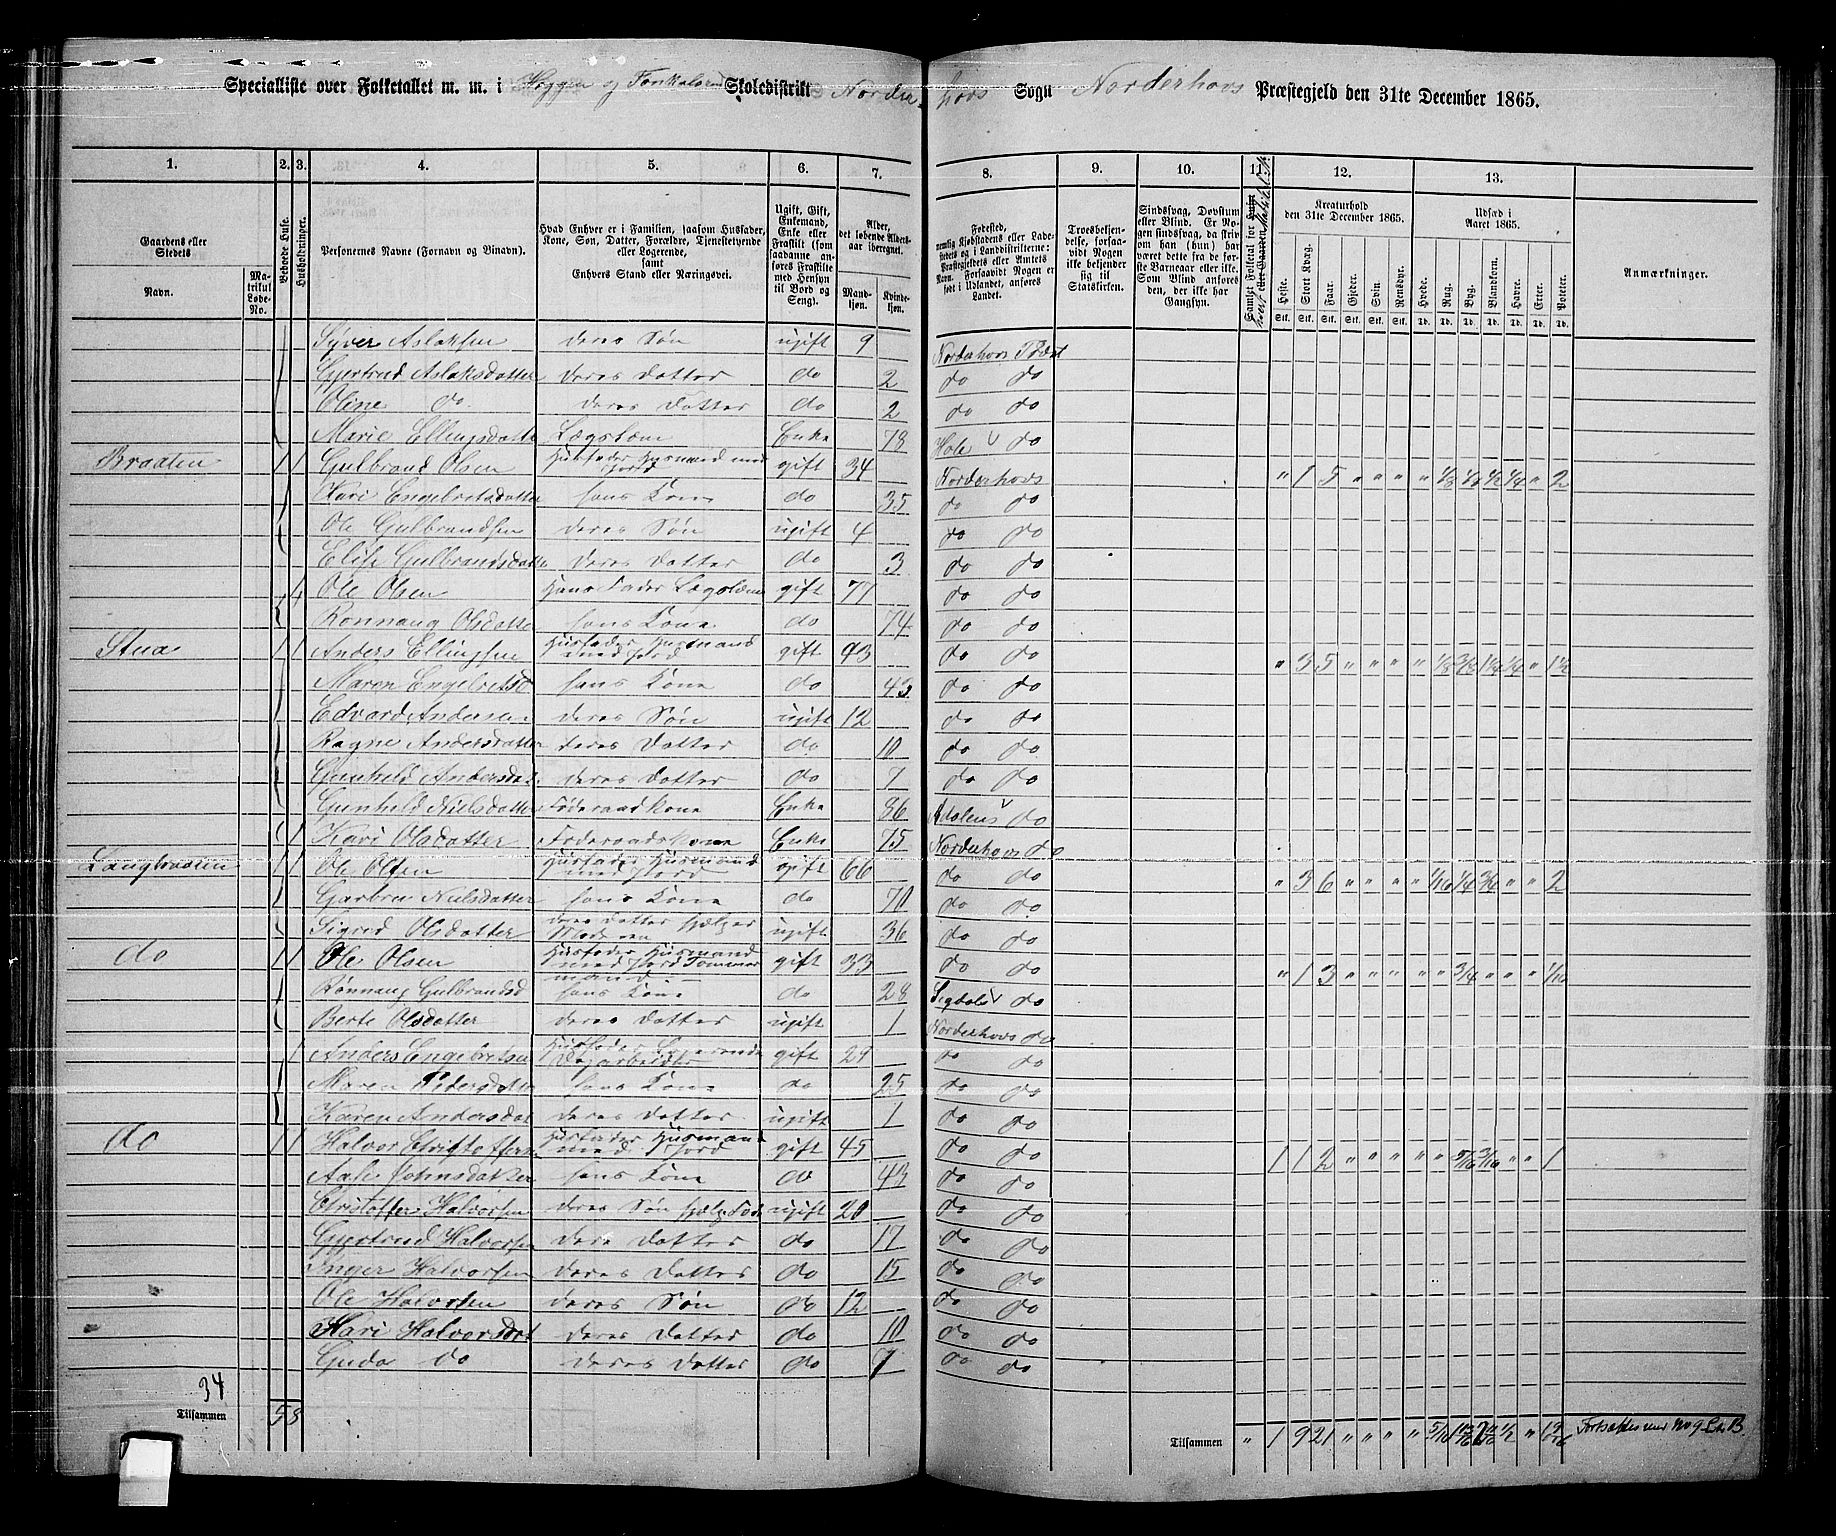 Specialliste over Folketallet m. m. i Hoggen og Skoledistrikt Norder- hovs Sogn Norderhovs Præstegjeld den 31te December 1865.
1. 2. 3. 4. 5. 6. 7. 8. 9. 10. 11. 12. 13.
Gaardens eller Stedets
Navn. Matrikul Løbe-No.
Beboede Huse.
Husholdninger.
Personernes Navne (Fornavn og Tilnavn).
Hvad Enhver er i Familien, saasom Husfader, Kone, Søn, Datter, Forældre, Tjenestetyende eller Logerende, samt Enhvers Stand eller Næringsvei.
Ugift, Gift, Enkemand, Enke eller Fraskilt
Alder, det løbende Aldersaar iberegnet.
Mandkjøn. Kvindekjøn.
Fødested,
Troesbekjendelse, forsaavidt Nogen ikke bekjender sig til Statskirken.
Sindssvag, Døvstum eller Blind.
Kreaturhold den 31te December 1865.
Udsæd i Aaret 1865.
Anmærkninger.
Heste. Stort Kvæg. Faar. Gjeder. Svin. Rensdyr. Hvede. Rug. Byg. Blandkorn. Havre. Erter. Poteter.
Stk. Stk. Stk. Stk. Stk. Stk. Td. Td. Td. Td. Td. Td. Td.
Syver Aslaksen deres Søn ugift 9 Norderhovs Præst
Gjertrud Aslaksdatter deres Datter do 2 do do
Oline do deres Datter do 2 do do
Marie Ellingsdatter Lægslæm Enke 78 Hole do
Braaten 1 1 Gulbrand Olsen Husfader Husmand med Jord gift 34 Norderhovs " 1 5 " " " " 1/8 1/2 1/4 " 2
Kari Engebretsdatter hans Kone do 35 do do
Ole Gulbrandsen deres Søn ugift 4 do do
Elise Gulbrandsdatter deres Datter do 3 do do
Ole Olsen Hans Fader Lægslæm gift 77 do do
Rønnaug Olsdatter hans Kone do 74 do do
Stua 1 1 Anders Ellingsen Husfader Husmand med Jord gift 43 do do " 3 5 " " " " 1/8 1/4 " 1 1/2
Maren Engebretsd hans Kone do 43 do do
Edvard Andersen deres Søn ugift 12 do do
Ragne Andersdatter deres Datter do 10 do do
Gunhild Andersdat deres Datter do 7 do do
Gunhild Nielsdatter Føderaadkone Enke 86 Aadalens do
1 Kari Olsdatter Føderaadskone Enke 75 Norderhovs do
Langbraaten 1 1 Ole Olsen Husfader Husmand med Jord gift 66 do do " 3 6 " " " " 1/16 1/4 " " 2
Nielsdatter hans Kone do 70 do do
Sigrid Olsdatter deres Datter hjælper Moderen ugift 36 do do
do 1 1 Ole Olsen Husfader Husmand med Jord Tømmermand gift 33 do do " 1 3 " " " " " 3/4 " " " 1/10
Rønnaug Gulbrandsd hans Kone do 28 Sigdals do
Berte Olsdatter deres Datter ugift 1 Norderhovs do
1 Anders Engebretsen Husfader Logerende Dagarbeider gift 29 do do
Maren Pedersdatter hans Kone do 25 do do
Karen Andersdat deres Datter ugift 1 do do
do 1 1 Halvor Christoffers Husfader Husmand med Jord gift 45 do do 1 1 2 " " " " " 5/16 3/16 " " 1
Aase Johnsdatter hans Kone do 43 do do
Christoffer Halvorsen deres Søn ugift 20 do do
Gjertrud Halvorsen deres Datter do 17 do do
Inger Halvorsen deres Datter do 15 do do
Ole Halvorsen deres Søn do 12 do do
Kari Halvorsdat deres Datter do 10 do do
Guda do deres Datter do 7 do do
34
Tilsammen 5 8
Tilsammen " 1 9 21 " " " "
Fortsættes No 9 B